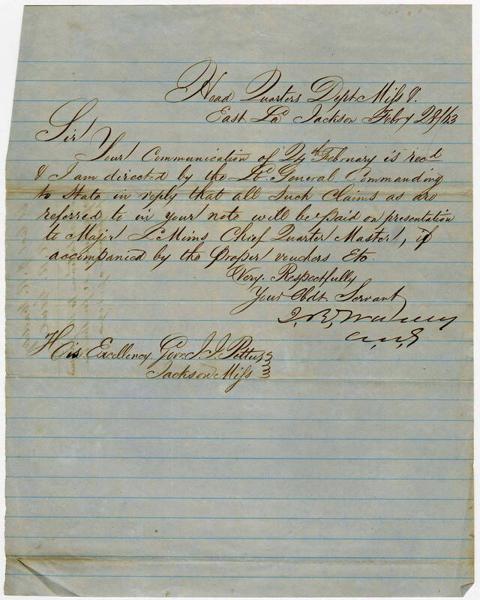 Head Quarters Dept Miss &
East La Jackson Feby 28/63
Sir!
Your Communication of 24th February is recd
& I am directed by the Lt. General Commanding
to State in reply that all such Claims as are
referred to in your note will be Paid on presentation
to Major L. Mims Chief Quarter Master, if
accompanied by the Proper vouchers Etc
Very Respectfully
Your Obdt Servant
His Excellency Gov. J. J. Pettus
Jackson Miss